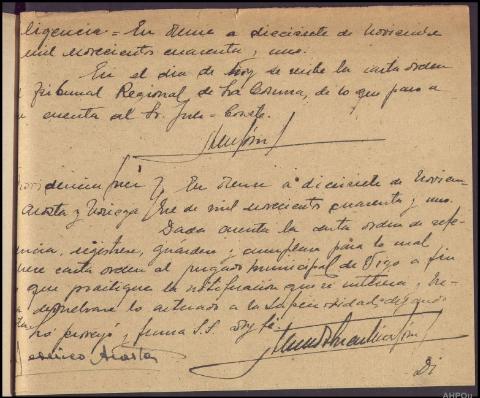 ligencia = En Orense a diecisiete de Noviembre
mil novecientos cuarenta y uno.
En el dia de hoy se recibe la carta orden
l Tribunal Regional de La Coruña, de lo que paso a
cuenta al Sr. Juez. Consta.
dencia Juez En Orense a diecisiete de Noviem
Acosta y Noriega bre de mil novecientos cuarenta y uno.
Dada cuenta la carta orden de refe
ncia, registrese, guardese y cumplase para lo cual
carta orden al juzgado municipal de Vigo a fin
que practique la notificación que se interesa,
devuelvase lo actuado a la Superioridad
proveyó y firma S.S. doy fé
Acosta
Di
AHPOu